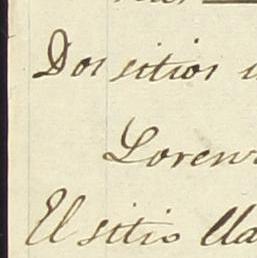 Dos sitios
Loren
El sitio lla